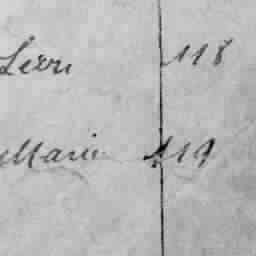 Leon 118
Marie 119